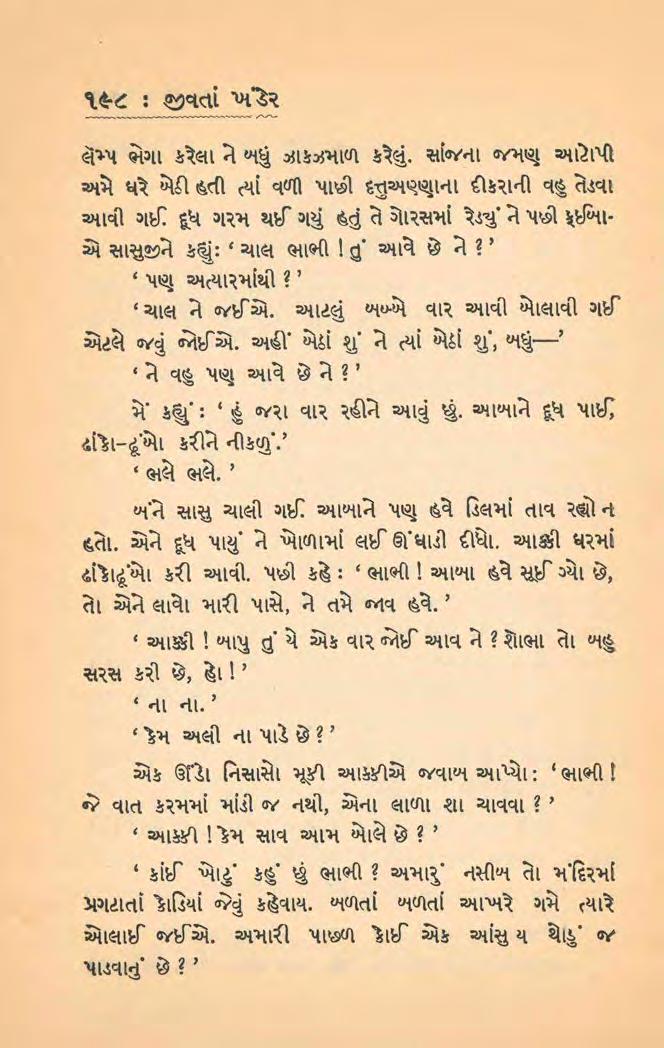 ૧૯૮ : જીવતાં ખંડેર
લૅમ્પ ભેગા કરેલા ને બધું ઝાકઝમાળ કરેલું. સાંજના જમણ આટોપી
અમે ઘરે બેઠી હતી ત્યાં વળી પાછી દત્તુઅણ્ણાના દીકરાની વહુ તેડવા
આવી ગઈ. દૂધ ગરમ થઈ ગયું હતું તે ગોરસમાં રેડ્યું ને પછી ફઈબા-
એ સાસુજીને કહ્યું: ‘ ચાલ ભાભી ! તું આવે છે ને ? ’
‘ પણ અત્યારમાંથી ? ’
‘ ચાલ ને જઈએ. આટલું બબ્બે વાર આવી બોલાવી ગઈ
એટલે જવું જોઈએ. અહીં બેઠાં શું ને ત્યાં બેઠાં શું, બધું—’
‘ ને વહુ પણ આવે છે ને ? ’
મેં કહ્યું : ‘ હું જરા વાર રહીને આવું છું. આબાને દૂધ પાઈ,
ઢાંકો-ઢૂંબો કરીને નીકળું.’
‘ ભલે ભલે. ’
બંને સાસુ ચાલી ગઈ. આબાને પણ હવે ડિલમાં તાવ રહ્યો ન
હતો. એને દૂધ પાયું ને ખોળામાં લઈ ઊંઘાડી દીધો. આક્કી ઘરમાં
ઢાંકોઢૂંબો કરી આવી. પછી કહે : ‘ ભાભી ! આબા હવે સૂઈ ગ્યો છે,
તો એને લાવો મારી પાસે, ને તમે જાવ હવે. ’
‘ આક્કી ! બાપુ તું યે એક વાર જોઈ આવ ને ? શોભા તો બહુ
સરસ કરી છે, હો ! ’
‘ ના ના. ’
‘ કેમ અલી ના પાડે છે ? ’
એક ઊંડો નિસાસો મૂકી આક્કીએ જવાબ આપ્યો : ‘ ભાભી !
જે વાત કરમમાં માંડી જ નથી, એના લાળા શા ચાવવા ? ’
‘ આક્કી ! કેમ સાવ આમ બોલે છે ? ’
‘ કાંઈ ખોટું કહું છું ભાભી ? અમારું નસીબ તો મંદિરમાં
પ્રગટાતાં કોડિયાં જેવું કહેવાય. બળતાં બળતાં આખરે ગમે ત્યારે
ઓલાઈ જઈએ. અમારી પાછળ કોઈ એક આંસુ ય થોડું જ
પાડવાનું છે ? ’